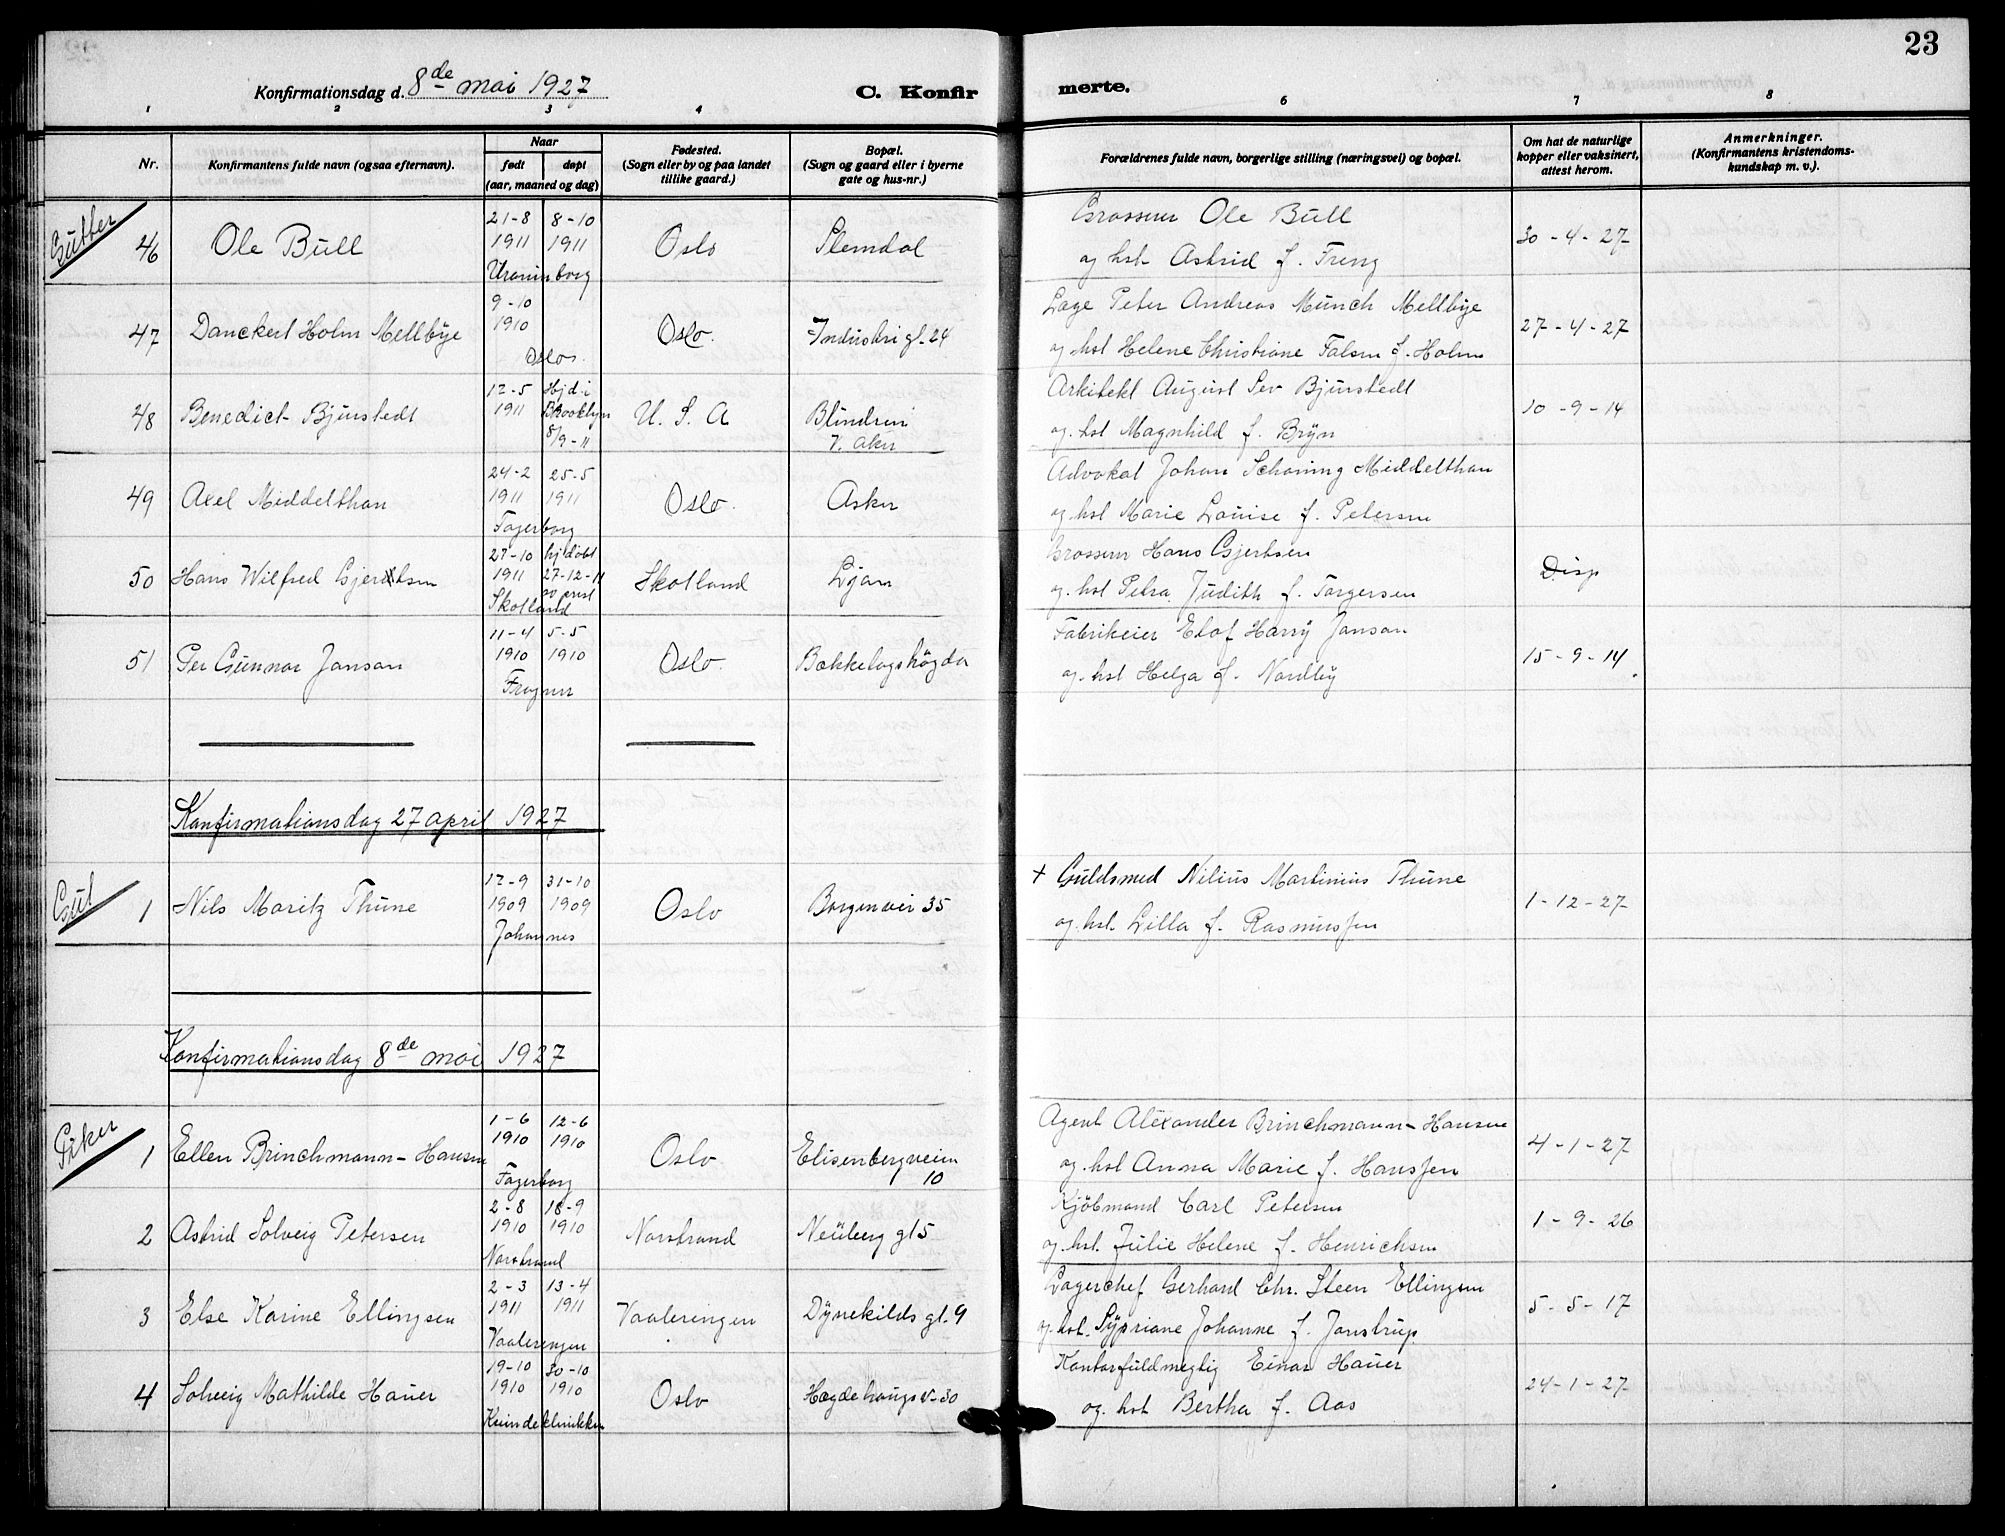 23
Konfirmationsdag d. 8de mai 1927
C. Konfirmerte.
1 2 3 4 5 6 7 8
Nr.
Konfirmantens fulde navn (ogsaa efternavn).
Naar
født
døpt
(aar, maaned og dag)
Fødested.
(Sogn eller by og paa landet
tillike gaard.)
Bopæl.
(Sogn og gaard eller i byerne
gate og hus-nr.)
Forældrenes fulde navn, borgerlige stilling (næringsvei) og bopæl.
Om hat de naturlige
kopper eller vaksinert,
attest herom.
Anmerkninger.
(Konfirmantens kristendoms-
kundskap m. v.).
Gutter
46 Ole Bull 21-8 1911 8-10 1911 Uranienborg Oslo Slemdal
Grosserer Ole Bull
og hst. Astrid f. Freng
30-4-27
47 Danckert Holm Mellbye 9-10 1910 Oslo Oslo. Industri gt. 24
Læge Peter Andreas Munch Mellbye
og hst Helene Christiane Falsen f. Holm
27-4-27
48 Benedict Bjurstedt 12-5 1911 Hjd. i Brooklyn 8/9-11 U. S. A Blindern V. Aker
Arkitekt August Sev Bjurstedt
og hst Magnhild f. Bryn
10-9-14
49 Axel Middelthon 24-2 1911 25-5 1911 Fagerborg Oslo. Asker
Advokat Johan Schøning Middelthon
og hst Marie Louise f. Petersen
50 Hans Wilfred Gjertsen 27-10 1911 hj døbt 27-12-11 Skotland Skotland Ljan
Grosserer Hans Gjertsen
og hst Petra Judith f. Torgersen
Disp
51 Per Gunnar Janson 11-4 1910 5-5 1910 Frogner Oslo. Bækkelagshøgda
Fabrikeier Elof Harry Janson
og hst Helga f. Nordby
15-9-14
Konfirmationsdag 27 april 1927
Gut
1 Nils Moritz Thune 12-9 1909 31-10 1909 Johannes Oslo Borgenvei 35
+ Guldsmed Nilius Martinius Thune
og hst. Lilla f. Rasmussen
1-12-27
Konfirmationsdag 8de mai 1927
Piker
1 Ellen Brinchmann-Hansen 1-6 1910 12-6 1910 Fagerborg Oslo Elisenbergveien 10
Agent Alexander Brinchmann-Hansen
og hst Anna Marie f. Hanssen
4-1-27
2 Astrid Solveig Petersen 2-8 1910 18-9 1910 Norstrand Norstrand Neuberg gt 5
Kjøbmand Carl Petersen
og hst. Julie Helene f. Henrichsen
1-9-26
3 Else Karine Ellingsen 2-3 1911 13-4 1911 Vaalerengen Vaaleringen Dynekilds gt. 9
Lagerchef Gerhard Chr. Steen Ellingsen
og hst. Sypriane Johanne f. Janstrup
5-5-17
4 Solveig Mathilde Hauer 19-10 1910 30-10 1910 Kvindeklinikken Oslo Hægdehaugs v. 30
Kontorfuldmegtig Einar Hauer
og hst Bertha f. Aas
24-1-27